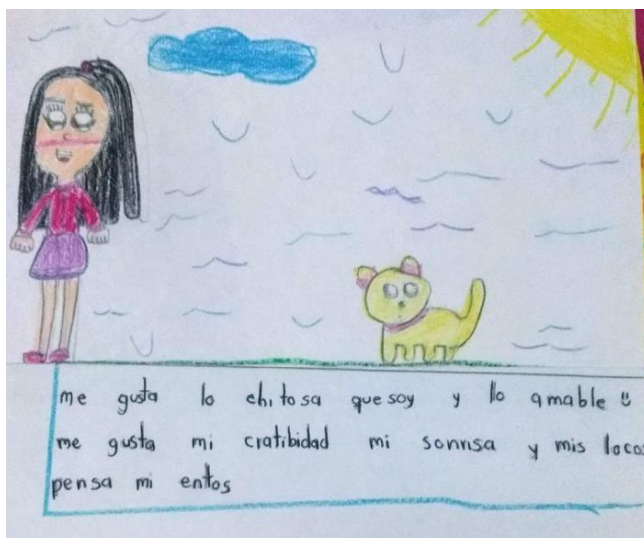 me gusta lo chitosa que soy y llo amable ü
me gusta mi cratibidad mi sonrisa y mis locos
pensa mi entos